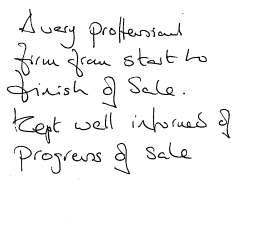 A very proffersional
firm from start to
finish of Sale.
Kept well informed of
Progress of Sale